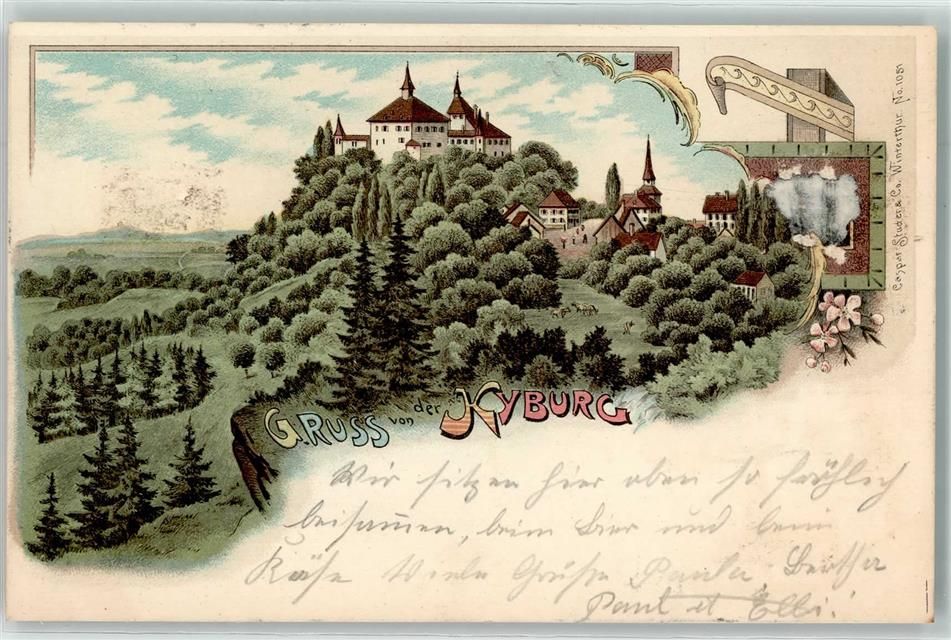 Caspar Studer & Co. Winterthur. No. 1051
GRUSS von der KYBURG
Wir sitzen hier oben so fröhlich
beisammen, beim Bier und beim
Käse Viele Grüße Paula, Bertha
Paul et Elli!